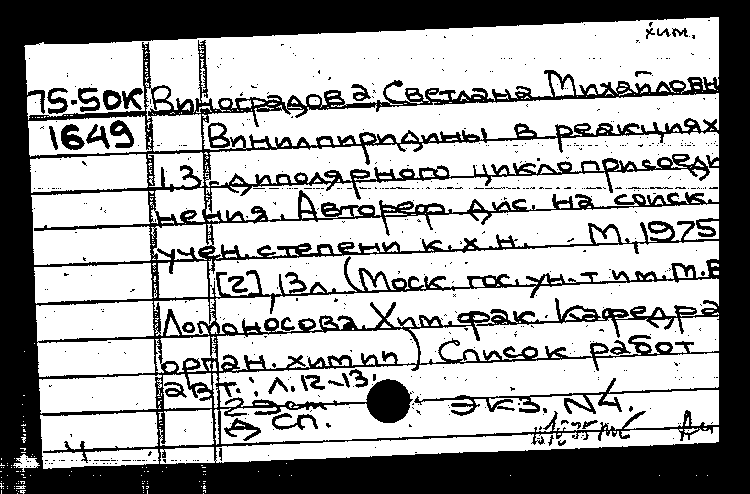 хим.
75-50К Виноградова, Светлана Михайловн
1649 Винилпиридины в реакциях
1,3-диполярного циклоприсоеди
нения. Автореф. дис. на соиск.
учен. степени к. х. н. М., 1975
[2], 13л. (Моск. гос. ун-т им. М.В
Ломоносова. Хим. фак. Кафедра
орган. химии). Список работ
авт.: л. 12-13.
Экз. N4.
сп.